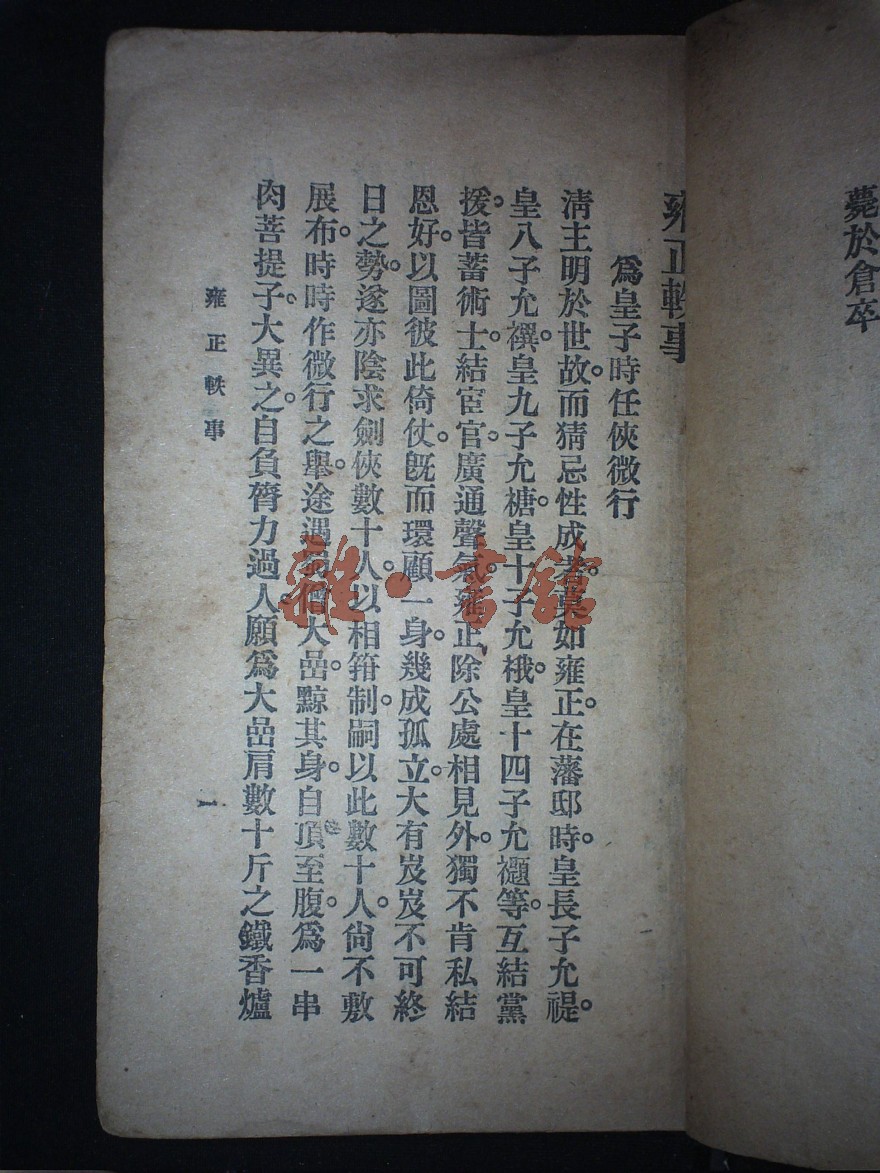 薨於倉卒
雍正軼事
爲皇子時任俠微行
清主明於世故。而猜忌性成者。莫如雍正。在藩邸時。皇長子允禔。
皇八子允禩。皇九子允禟。皇十子允䄉。皇十四子允禵等。互結黨
援。皆蓄術士。結宦官。廣通聲氣。雍正除公處相見外。獨不肯私結
恩好。以圖彼此倚仗。既而環顧一身。幾成孤立。大有岌岌不可終
日之勢。遂亦陰求劍俠數十人。以相箝制。嗣以此數十人。尙不敷
展布。時時作微行之舉。途遇僧大嵒。黥其身。自頂至腹。爲一串
肉菩提子。大異之。自負膂力過人。願爲大嵒肩數十斤之鐵香爐
雍正軼事
一
雜·書館